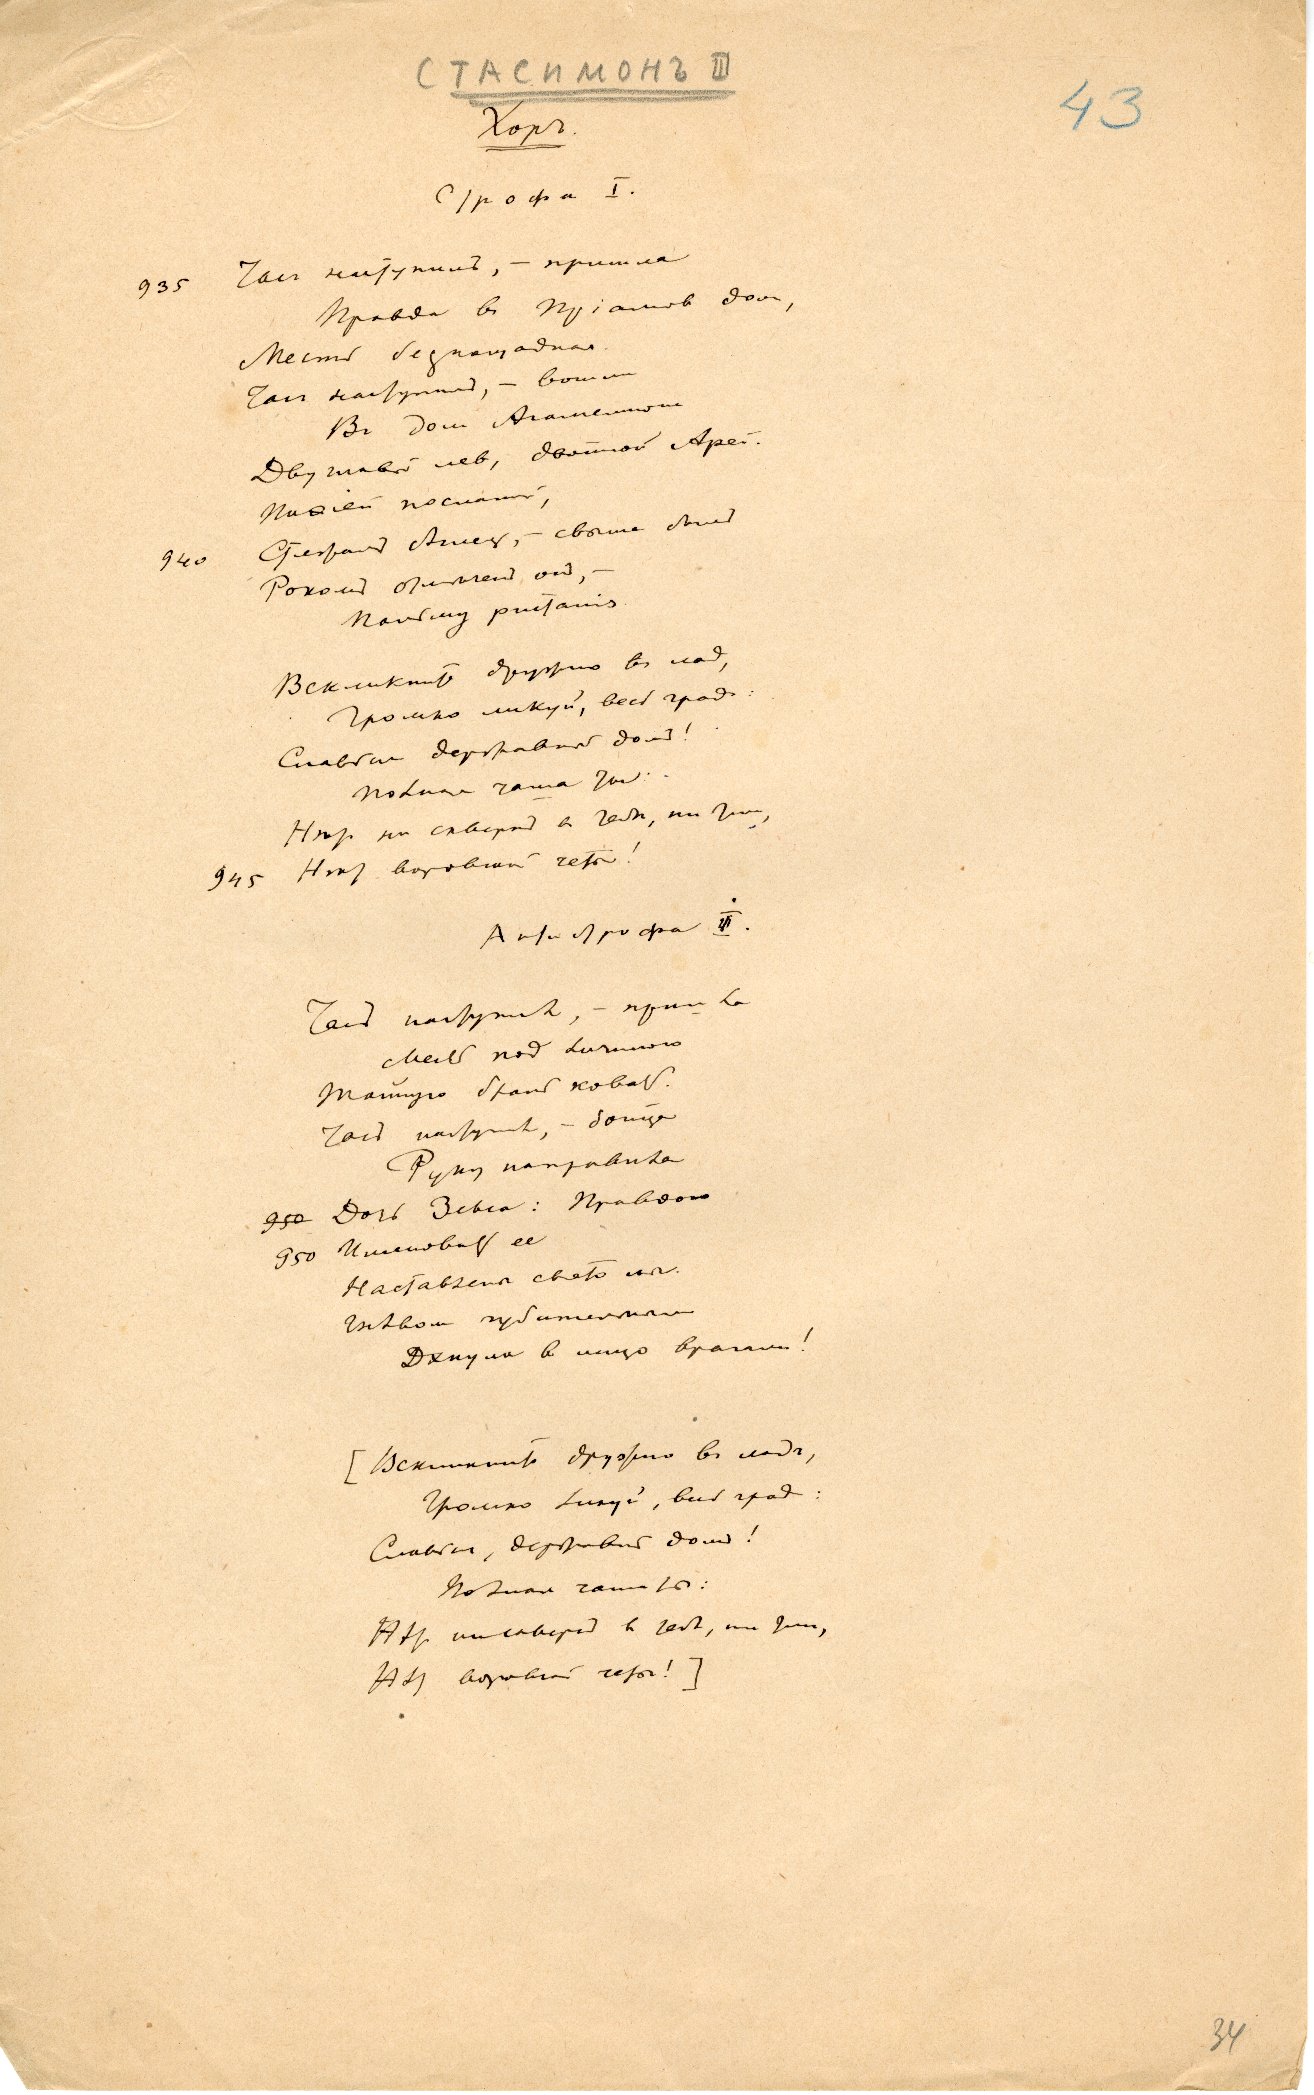 СТАСИМОНЪ III
43
Хоръ.
Строфа I.
935 Часъ наступилъ, – пришла
Правда въ Пріамов дом,
Месть безпощадная.
Часъ наступил, – вошли
Въ дом Агамемнона
Двуглавый лев, двойной Арей.
Пиѳіей посланный,
940 Стезѣ, – свыше былъ
Рокомъ он, –
Вскликните дружно въ лад,
Громко ликуй, весь град:
Славься державный домъ!
Полная чаша ты:
Нѣт ни скверны в тебѣ, ни тли,
945 Нѣт воровской четы!
Антистрофа I.
Часъ наступил, – пришла
Месть под личиною
Тайную брань ковать.
Часъ наступил, – бойца
Руку направила
950 Дочь Зевса: Правдою
950 Именовать ее
Наставлены свѣтомъ мы.
Гнѣвом губительным
Дхнула в лицо врагамъ!
[Вскликните дружно въ ладъ,
Громко ликуй, весь град:
Славься, державный домъ!
Полная чаша ты:
Нѣт ни скверны в тебѣ, ни тли,
Нѣт воровской четы!]
34